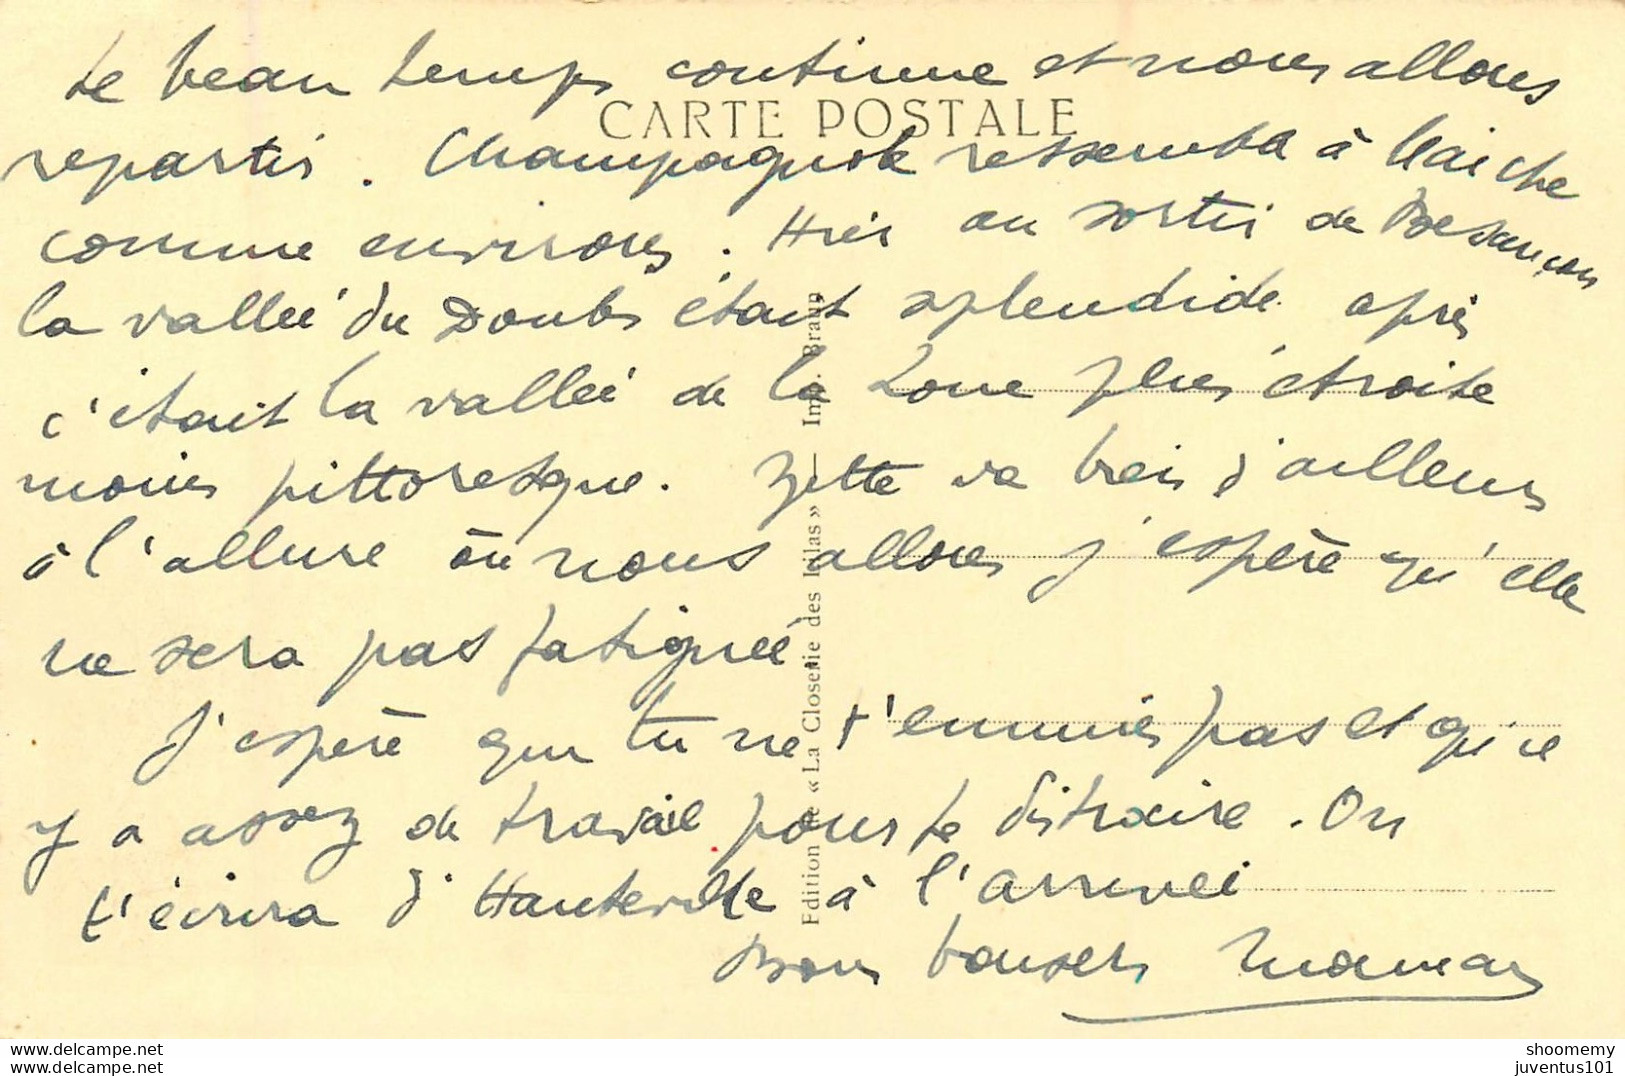 Le beau temps continue et nous allons
CARTE POSTALE
repartir. Champagnole ressemble à Maiche
comme environs. Hier au sortir de Besançon
la vallée du Doubs était splendide après
c'était la vallée de la Loue plus étroite
moins pittoresque. Zette va bien d'ailleurs
à l'allure où nous allons j'espère qu'elle
ne sera pas fatiguée
J'espère que tu ne t'ennuies pas et qu'il
y a assez de travail pour te distraire. On
t'écrira d'Hauteville à l'arrivée
Bons baisers Maman
Edition de « La Closerie des Lilas » — Imp. Braun
www.delcampe.net
www.delcampe.net
shoomemy
juventus101